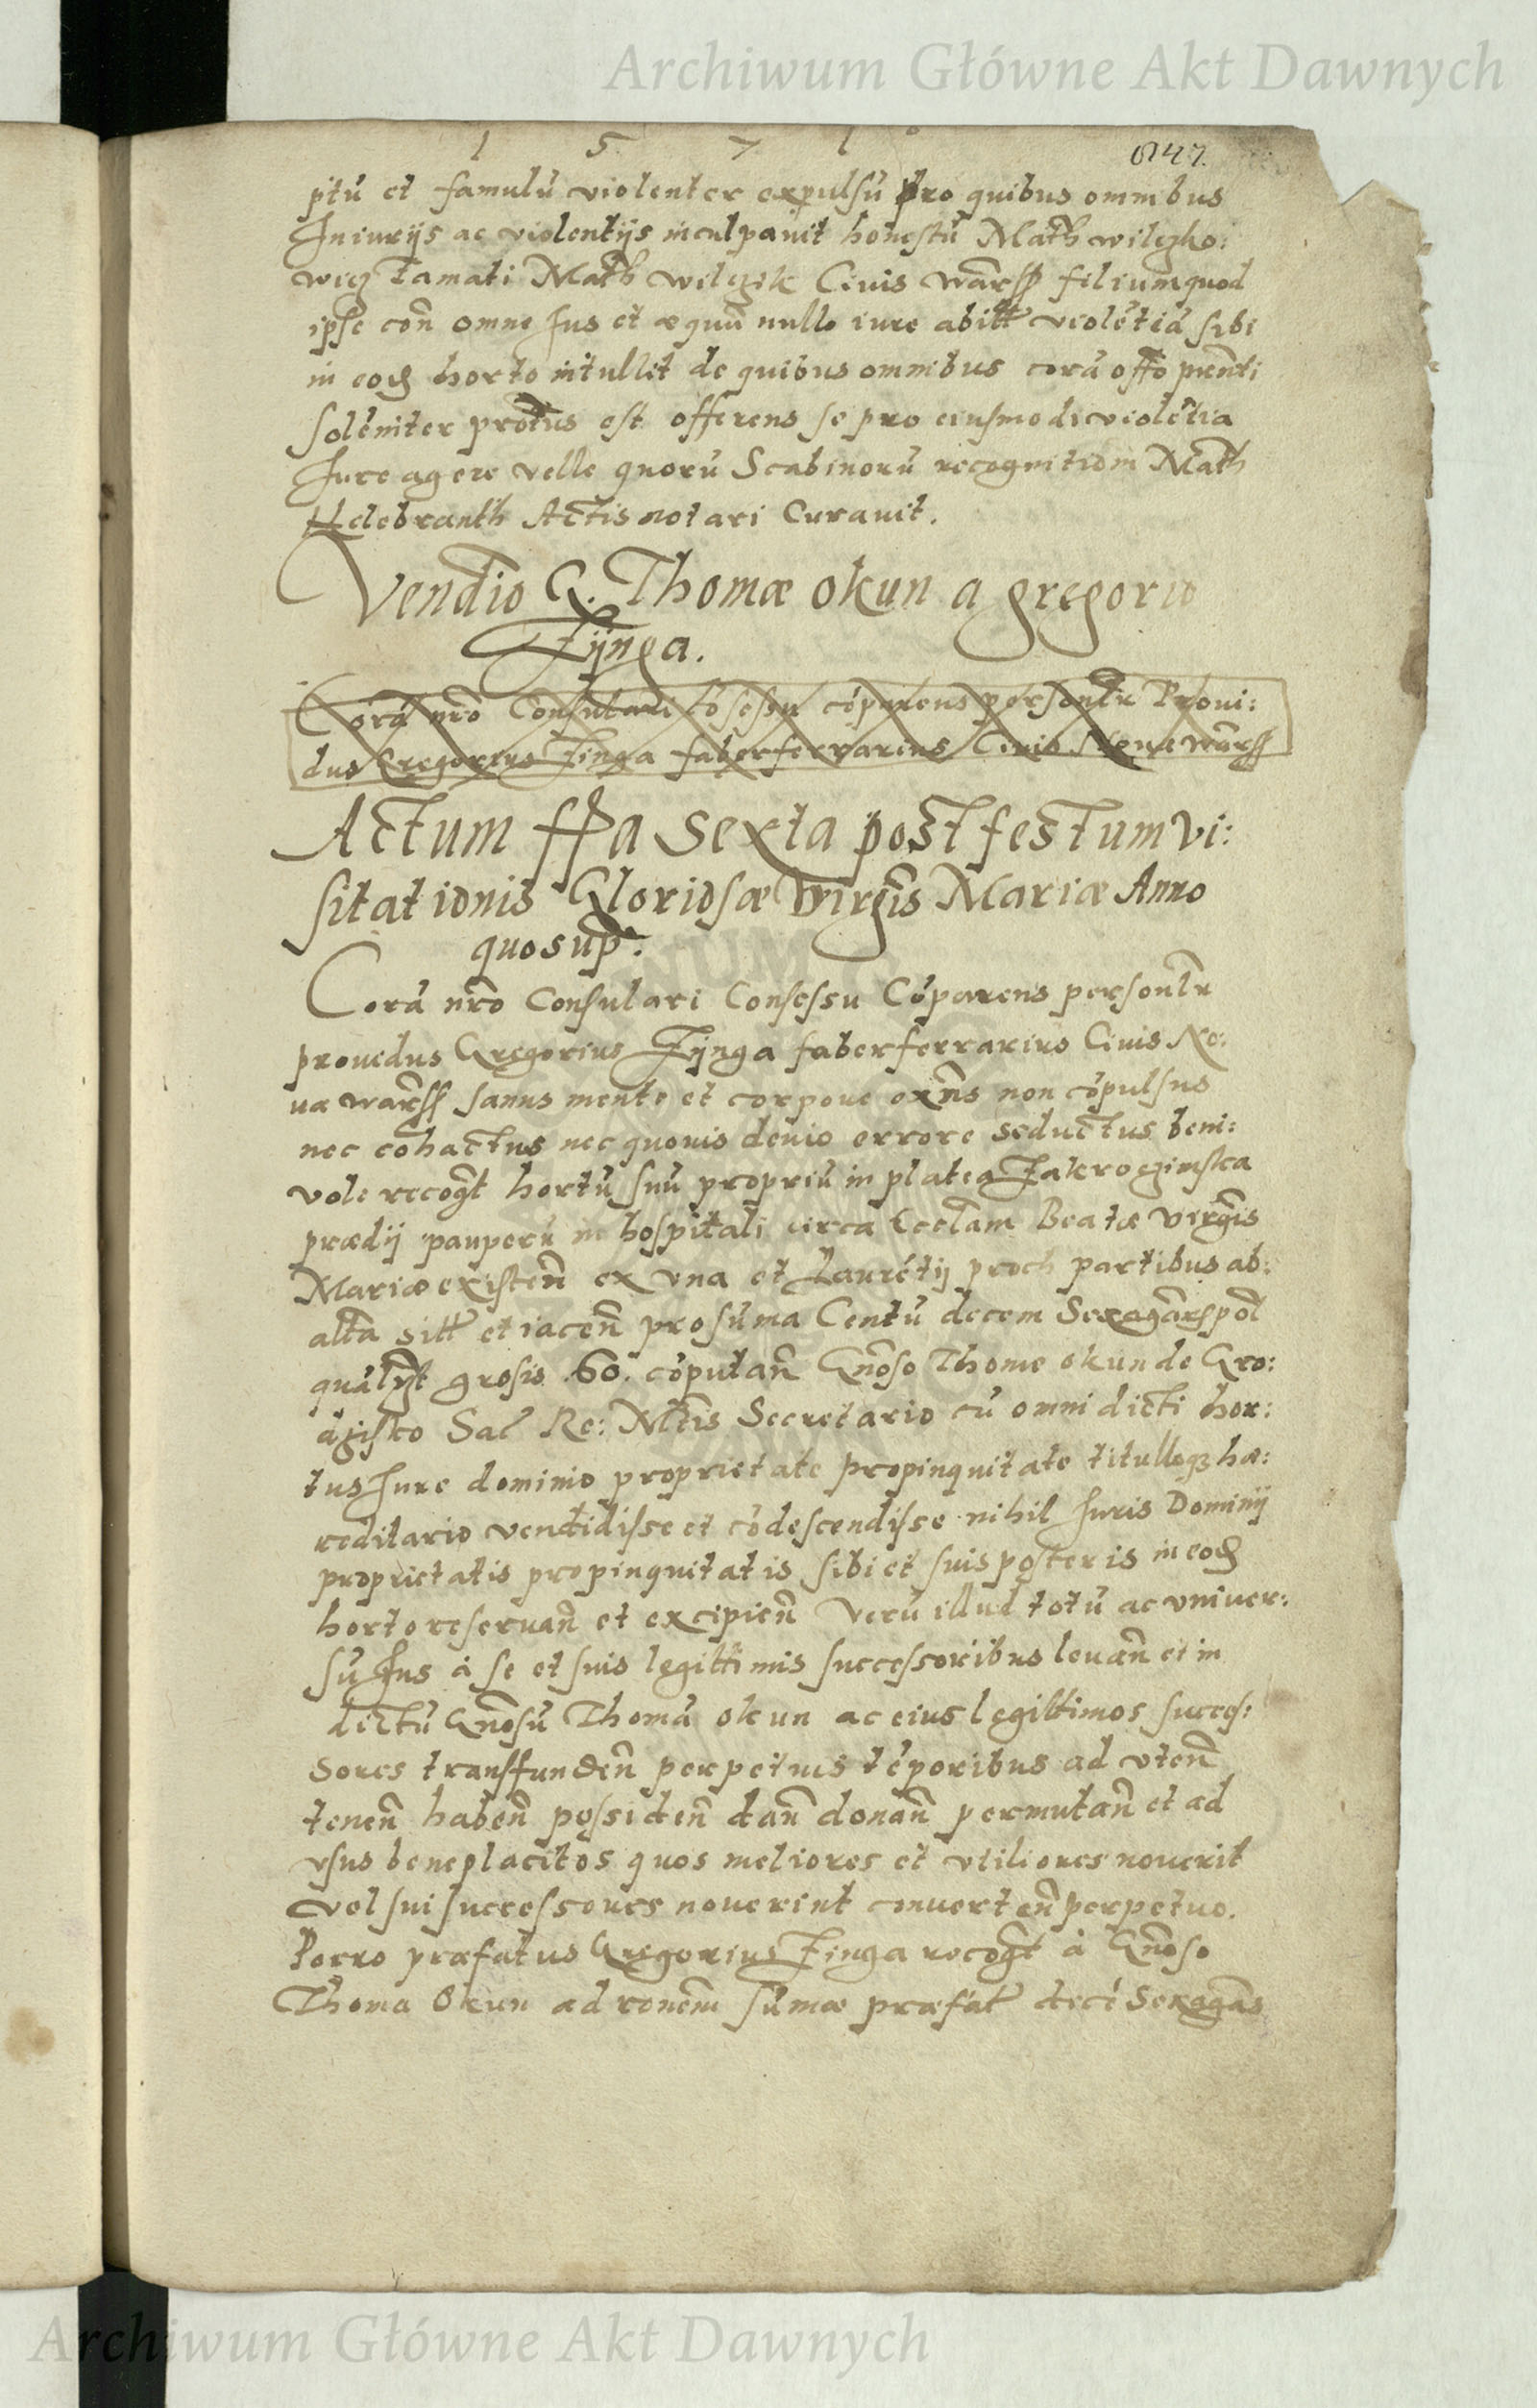 Archiwum Główne Akt Dawnych
1 5 7 1
647.
ptū et famulū violenter expulsū pro quibus omnibus
Iniurijs ac violentijs inculpauit honestū Math wilczko:
wicz famati Math wilczik Ciuis warss filium quod
ipse con̄ omne Ius et æquū nullo iure abitr̄ violētiā sibi
in eod horto intullit de quibus omnibus corā offo pn̄ti
solēniter protus est offerens se pro eiusmodi violētia
Iure agere velle quorū Scabinorū recognitiom Math
Helebranth Actis notari Curauit.
Vendio G. Thomæ okun a gregorio
Zÿnga.
Corā nr̄o Consulari Cōsessu cōparens personlr Proui:
dus Gregorius Zinga faber ferrarius Ciuis Nouæ warss
Actum ffa Sexta post festum vi:
sitationis Gloriosæ virgīs Mariæ Anno
quo sup:
Corā nr̄o Consulari Consessu Cōparens personlr
prouidus Gregorius Zÿnga faber ferrarius Ciuis No:
uæ warss sanus mente et corpore exn̄s non cōpulsus
nec cohactus nec quouis deuio errore seductus beni:
vole recogt hortū suū propriū in platea Zakroczimska
prædij pauperū in hospitali circa Eccl̄am Beatæ virgīs
Mariæ existen̄ ex vna et Laurētij proch partibus ab:
alt̄a sitt et iacen̄ pro sūma Centū decem Sexagar pol
qualt grosis 60. cōputan̄ Gn̄oso Thome okun de Gro:
Sac Re: Mtis Secretario cū omni dicti hor:
tus Iure dominio proprietate propinquitate titulloqz hæ:
reditario vendidisse et cōdescendisse nihil Iuris Dominij
proprietatis propinquitatis sibi et suis posteris in eod
horto reseruan̄ et excipien̄ Verū illud totū ac vniuer:
sū Ius à se et suis legittimis successoribus leuan̄ et in
dictū Gn̄osū Thomā okun ac eius legittimos succes:
sores transffunden̄ perpetuis tēporibus ad vten̄
tenen̄ haben̄ possiden̄ dan̄ donan̄ permutan̄ et ad
vsus beneplacitos quos meliores et vtiliores nouerit
vel sui successores nouerint conuerten̄ perpetuo.
Porro præfatus Gregorius Zinga recogt à Gn̄oso
Thoma Okun ad ronem sūmæ præfat decē Sexagās
Archiwum Główne Akt Dawnych